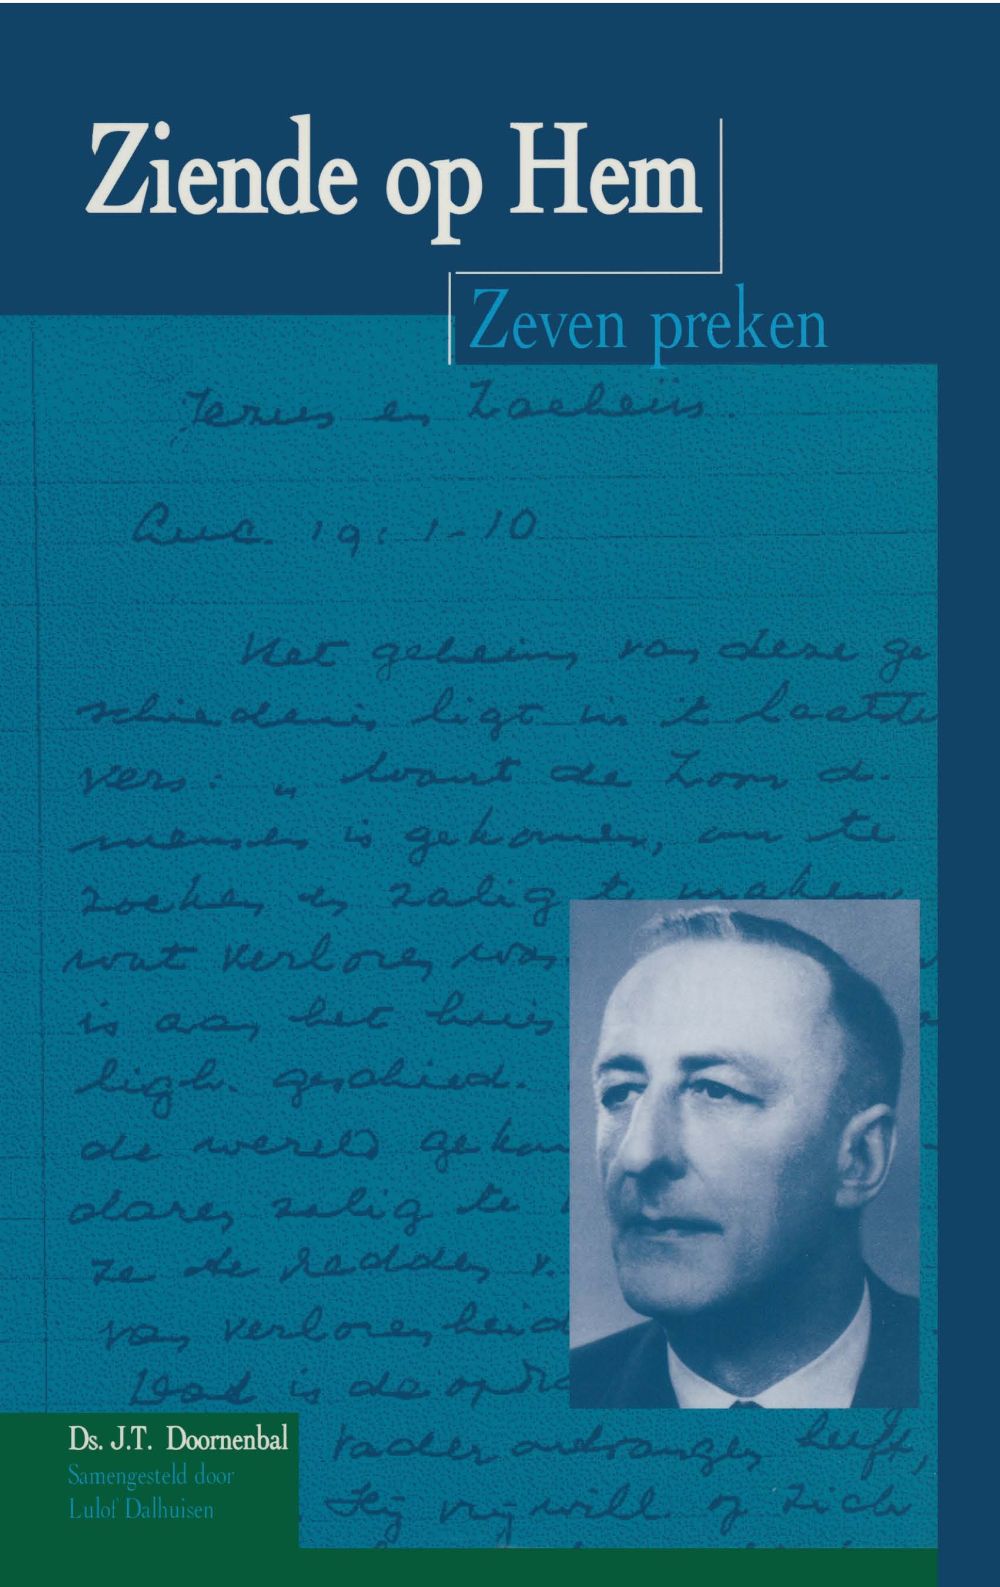 Ziende op Hem
Zeven preken
Jezus en Zacheüs.
Luc. 19:1-10
Het geheim van deze ge
schiedenis ligt in 't laatste
vers: „want de Zoon d.
menschen is gekomen, om te
zoeken en zalig te maken
wat verloren was
is aan het huis
ligh. geschied.
de wereld geko
daren zalig te
ze te redden v.
van verlorenheid
Dat is de opdr
Vader ontvangen heeft,
Hij vrijwill. op Zich
Ds. J.T. Doornenbal
Samengesteld door
Lulof Dalhuisen